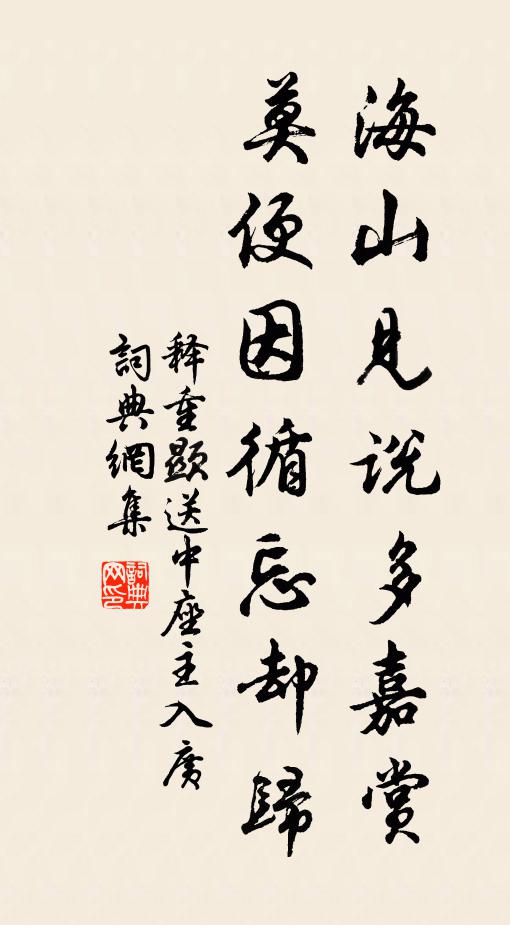 海山見説多嘉賞
莫便因循忘却歸
释重顯送中座主入廣
詞典網集
詞典网印